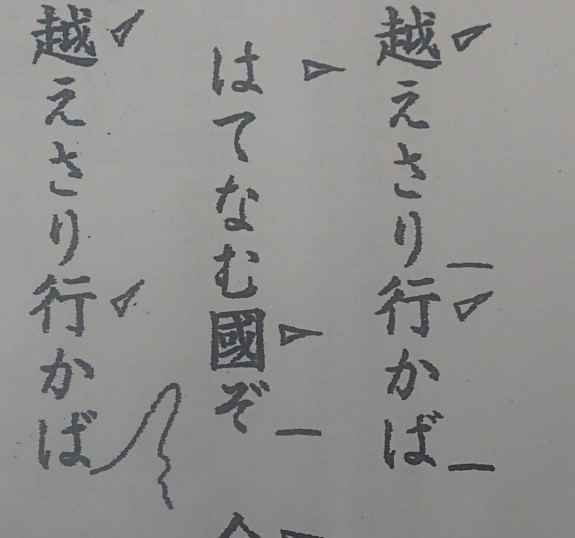 越えさり行かば
はてなむ國ぞ
越えさり行かば